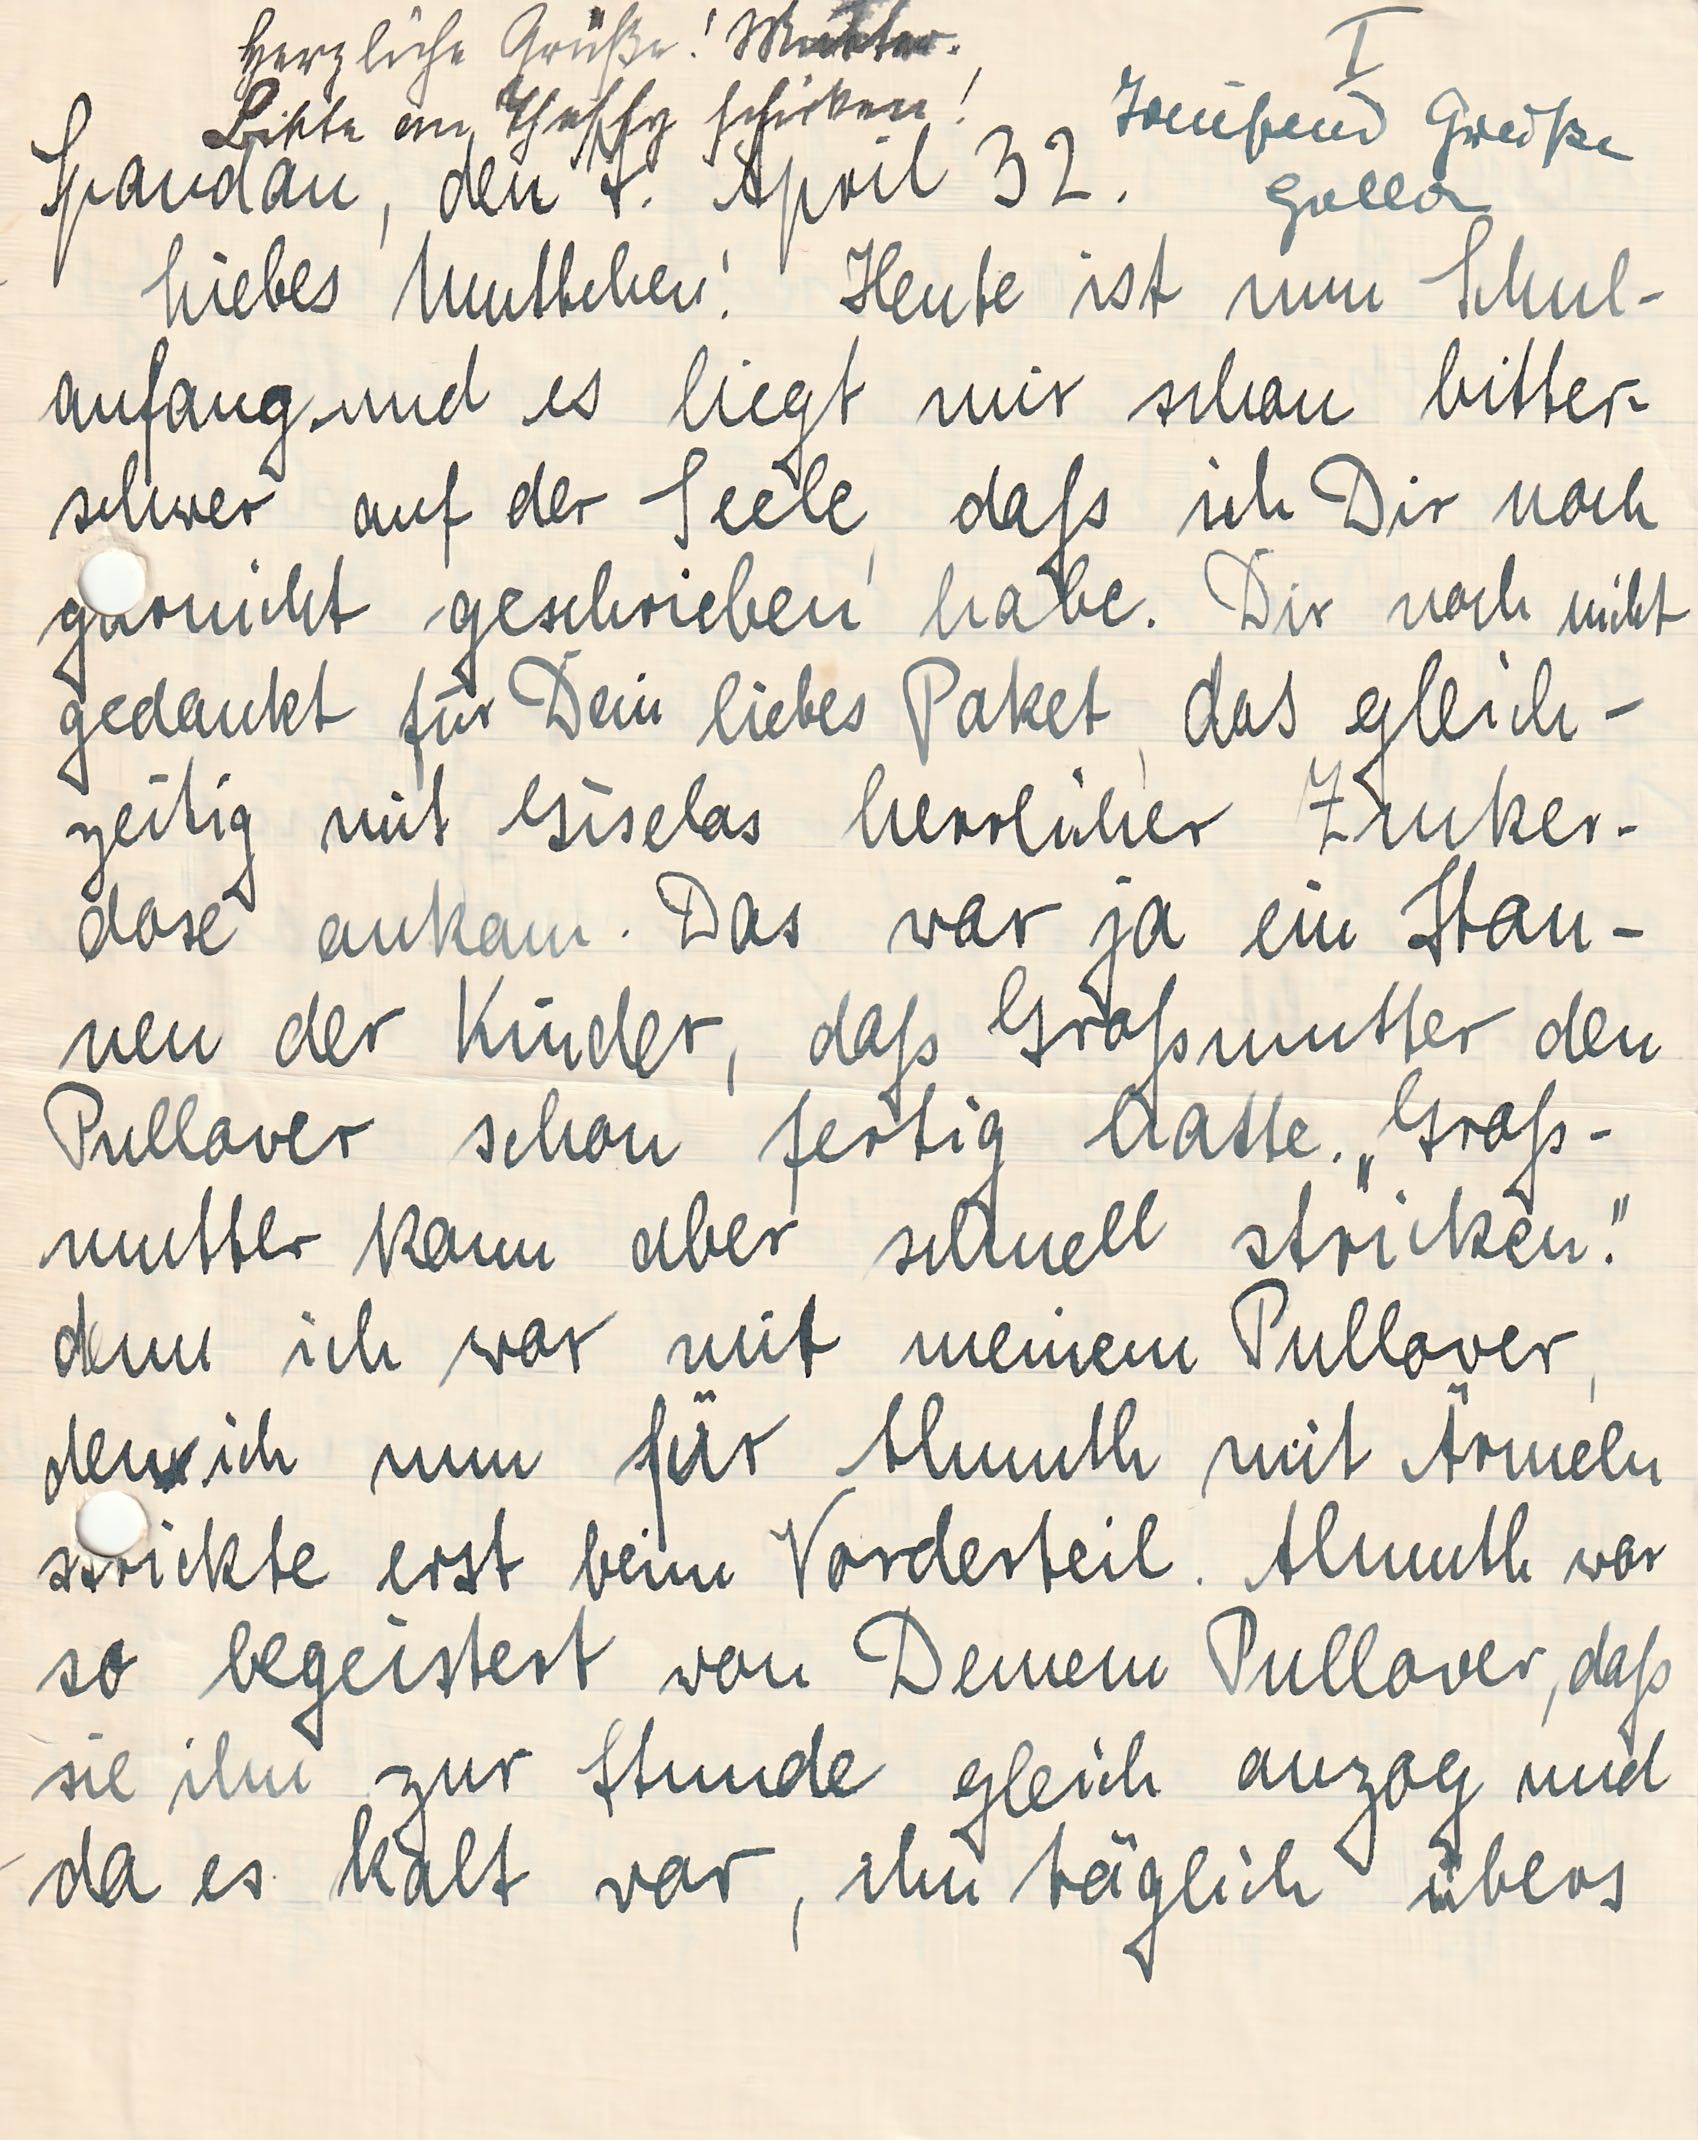 Herzliche Grüße! Mutter.
I
Bitte an Steffy schicken!
Tausend Grüße
Gella
Spandau, den 7. April 32.
Liebes Muttchen! Heute ist nun Schul-
anfang und es liegt mir schon bitter-
schwer auf der Seele, daß ich Dir noch
garnicht geschrieben habe. Dir noch nicht
gedankt für Dein liebes Paket, das gleich-
zeitig mit Giselas herrlicher Zucker-
dose ankam. Das war ja ein Stau-
nen der Kinder, daß Großmutter den
Pullover schon fertig hatte. „Groß-
mutter kann aber schnell stricken."
denn ich war mit meinem Pullover,
den ich nun für Almuth mit Ärmeln
strickte erst beim Vorderteil. Almuth war
so begeistert von Deinem Pullover, daß
sie ihn zur Stunde gleich anzog und
da es kalt war, ihn täglich übers